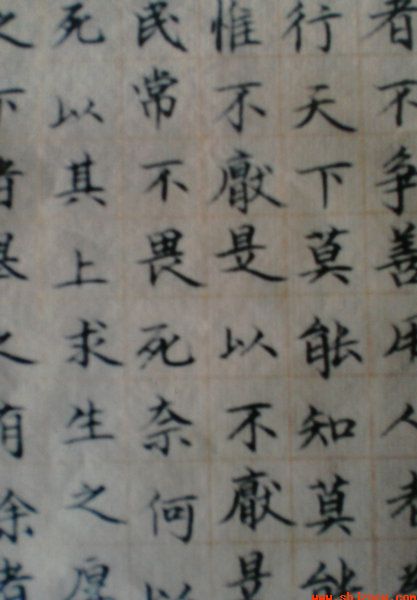 者不争善用人者
行天下莫能知莫能
惟不厭是以不厭是
民常不畏死奈何以
死以其上求生之厚
之下者基之有餘者